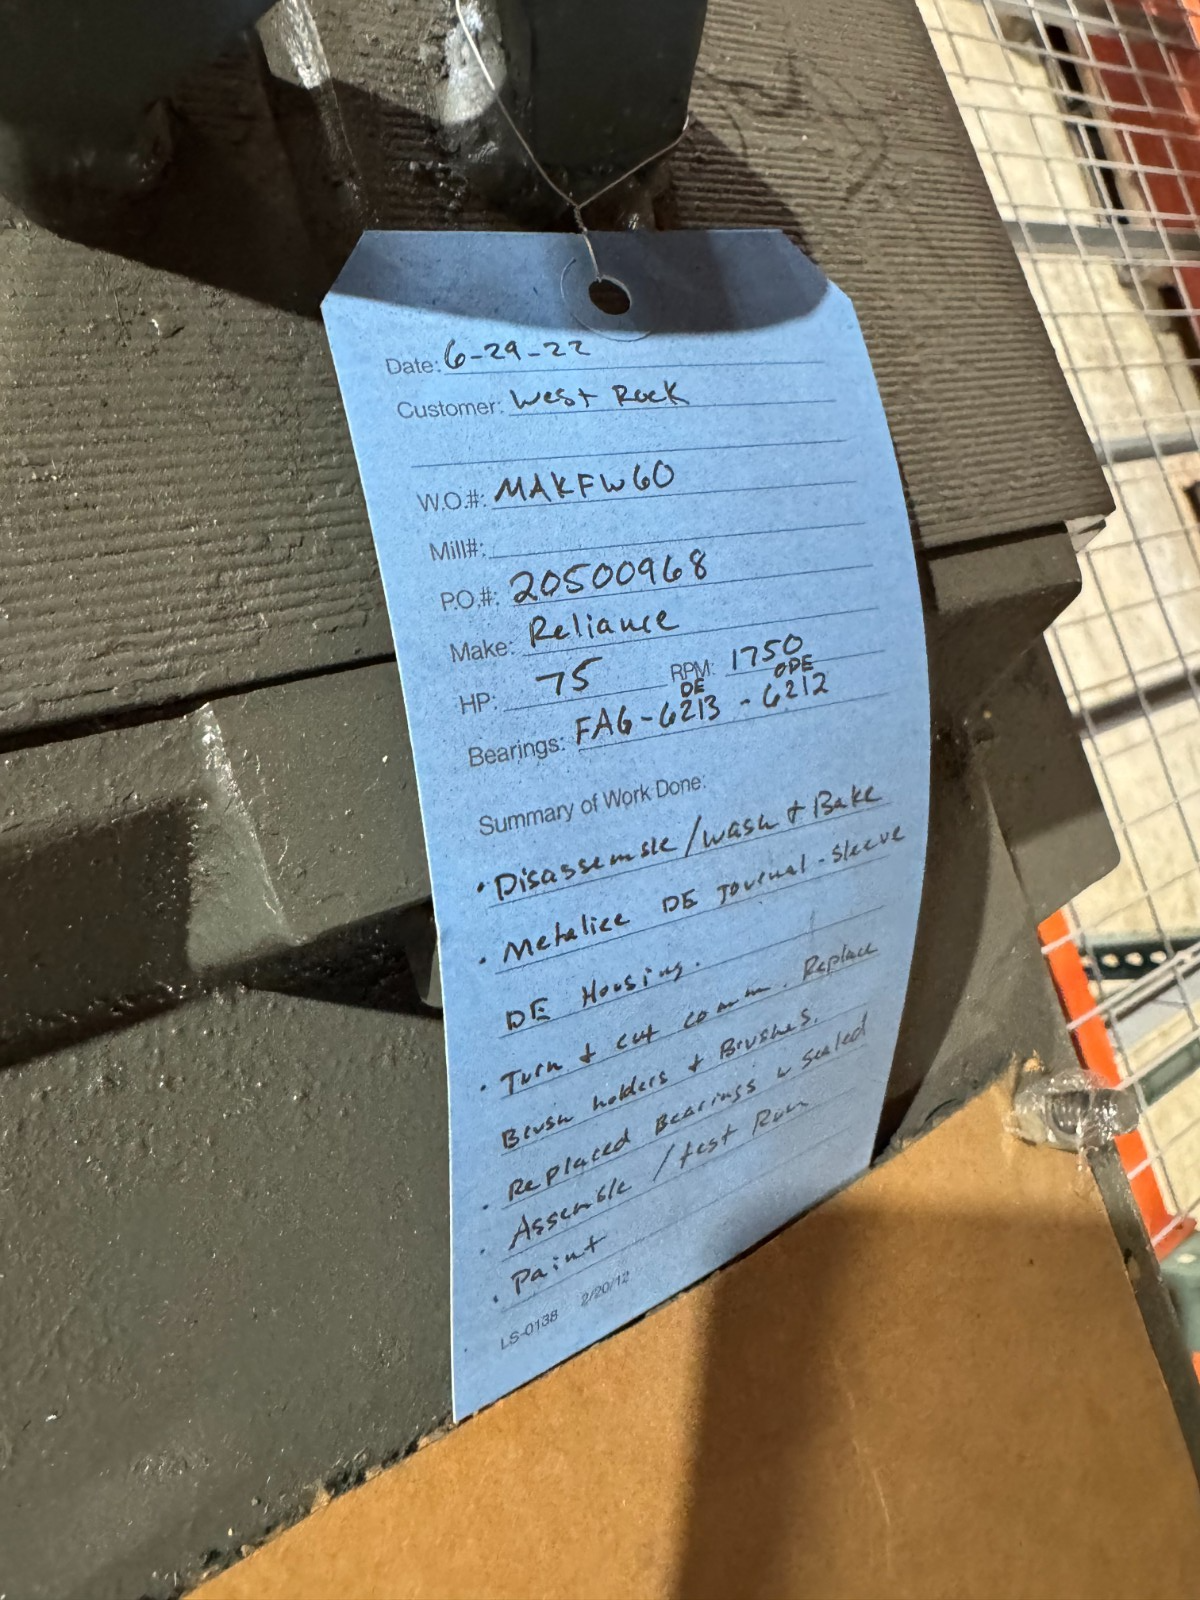 Date: 6-29-22
Customer: West Rock
W.O.#: MAKFW60
Mill#:
P.O.#: 20500968
Make: Reliance
HP: 75 RPM: 1750
DE ODE
Bearings: FAG-6213 - 6212
Summary of Work Done:
• Disassemble/wash & Bake
• Metalice DE Journal-Sleeve
DE Housing.
• Turn & cut comm. Replace
Brush holders & Brushes.
• Replaced Bearings w sealed
• Assemble/test Run
• Paint
LS-0138 2/20/12